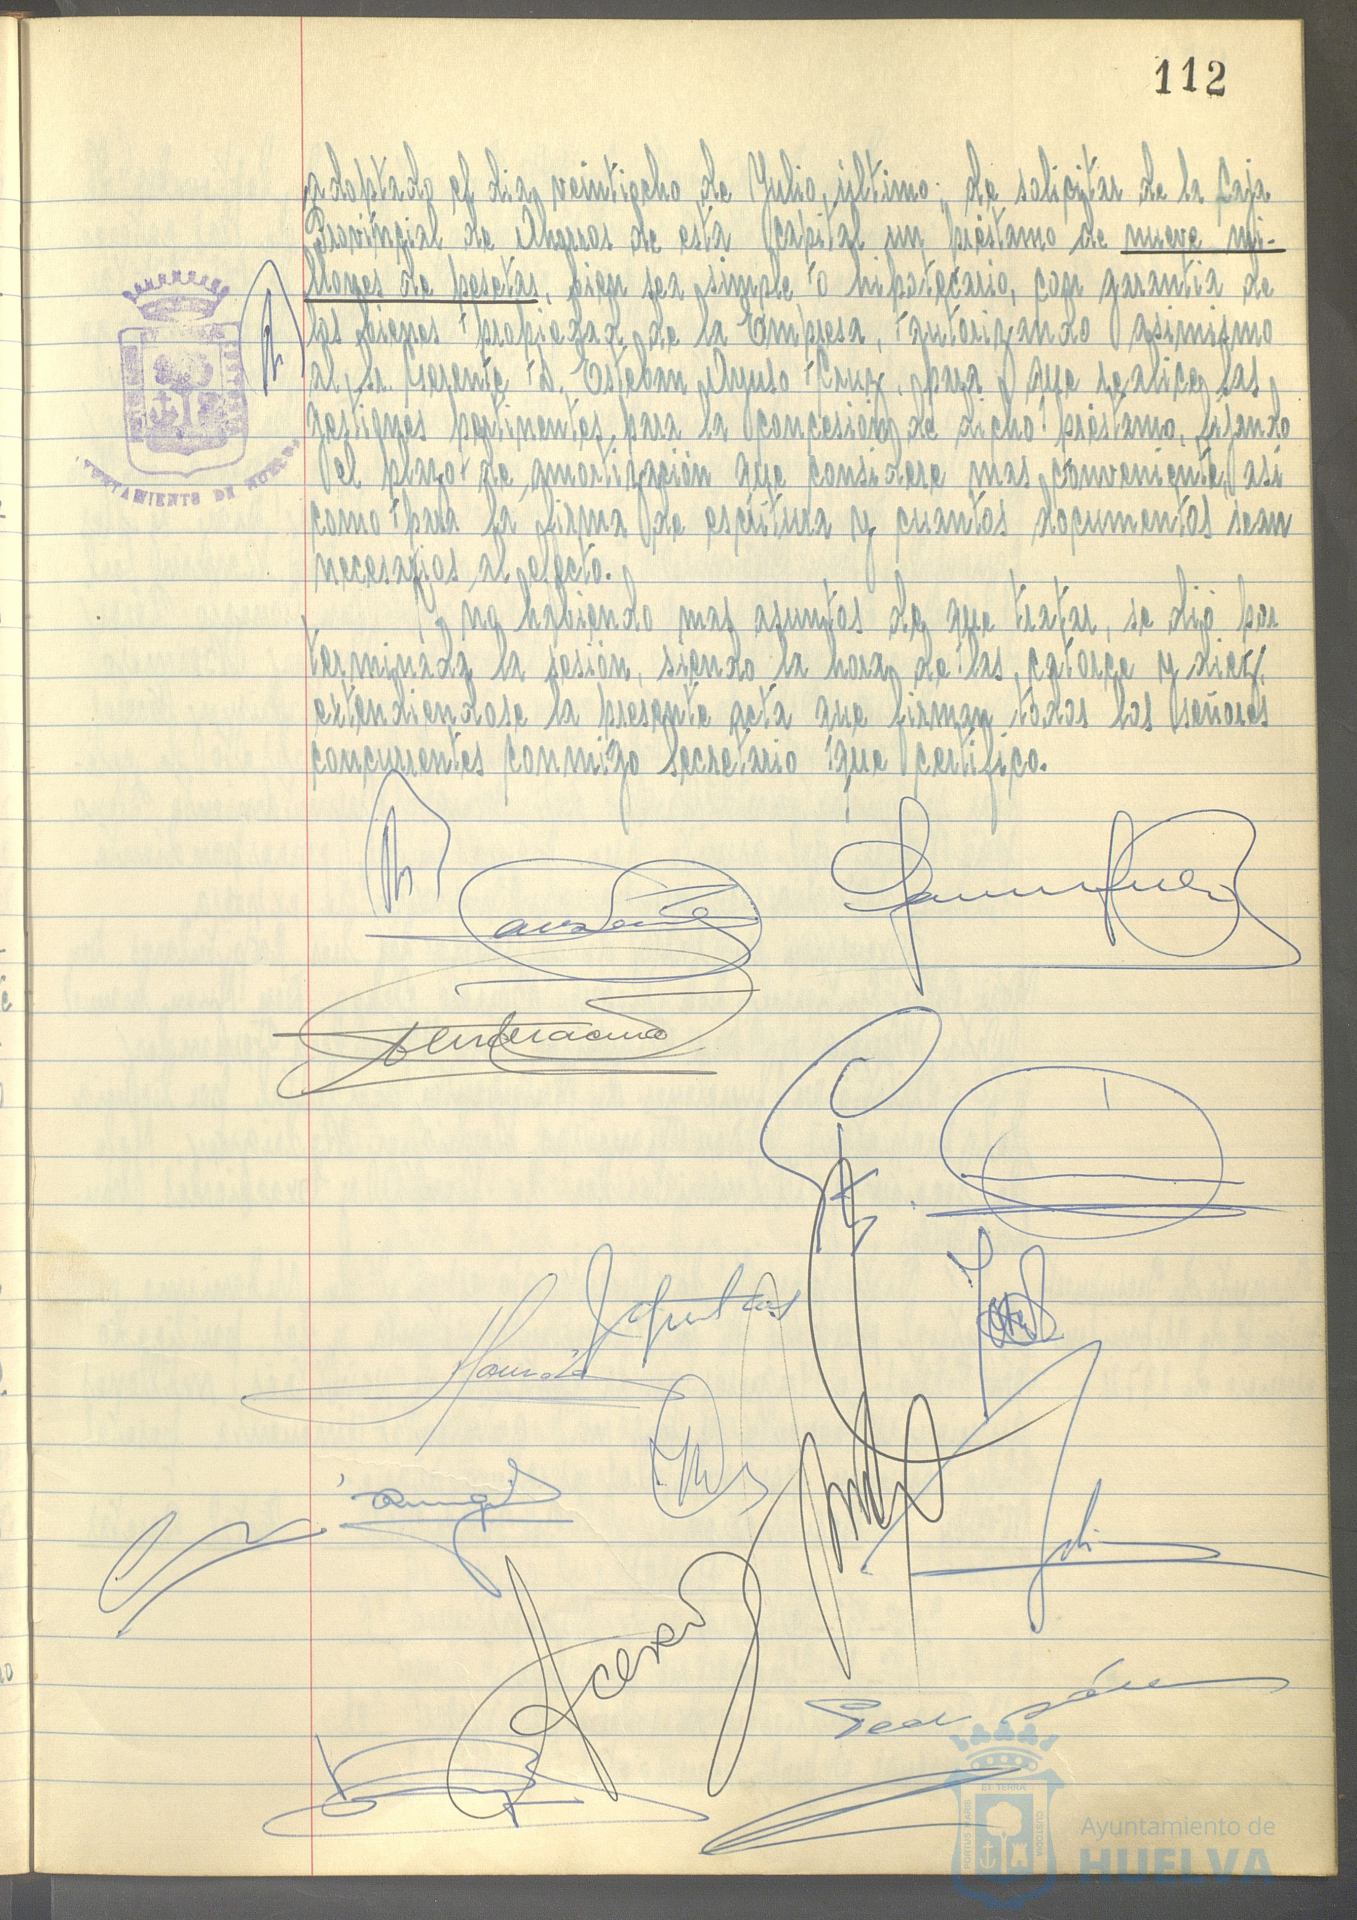 112
adoptado el dia veintiocho de Julio último, de solicitar de la Caja
Provincial de Ahorros de esta Capital un préstamo de nueve mi-
llones de pesetas, bien sea simple o hipotecario, con garantia de
los bienes propiedad de la Empresa, autorizando asimismo
al Sr. Gerente D. Esteban Cruz, para que realice las
gestiones pertinentes para la concesión de dicho préstamo, fijando
el plazo de amortización que considere mas conveniente, asi
como para la firma de escritura y cuantos documentos sean
necesarios al efecto.
Y no habiendo mas asuntos de que tratar, se dió por
terminada la sesión, siendo la hora de las catorce y diez,
extendiendose la presente acta que firman todos los señores
concurrentes conmigo Secretario que certifico.
AYUNTAMIENTO DE HUELVA
Acevedo
PORTUS MARIS
ET TERRA
CUSTODIA
Ayuntamiento de
HUELVA